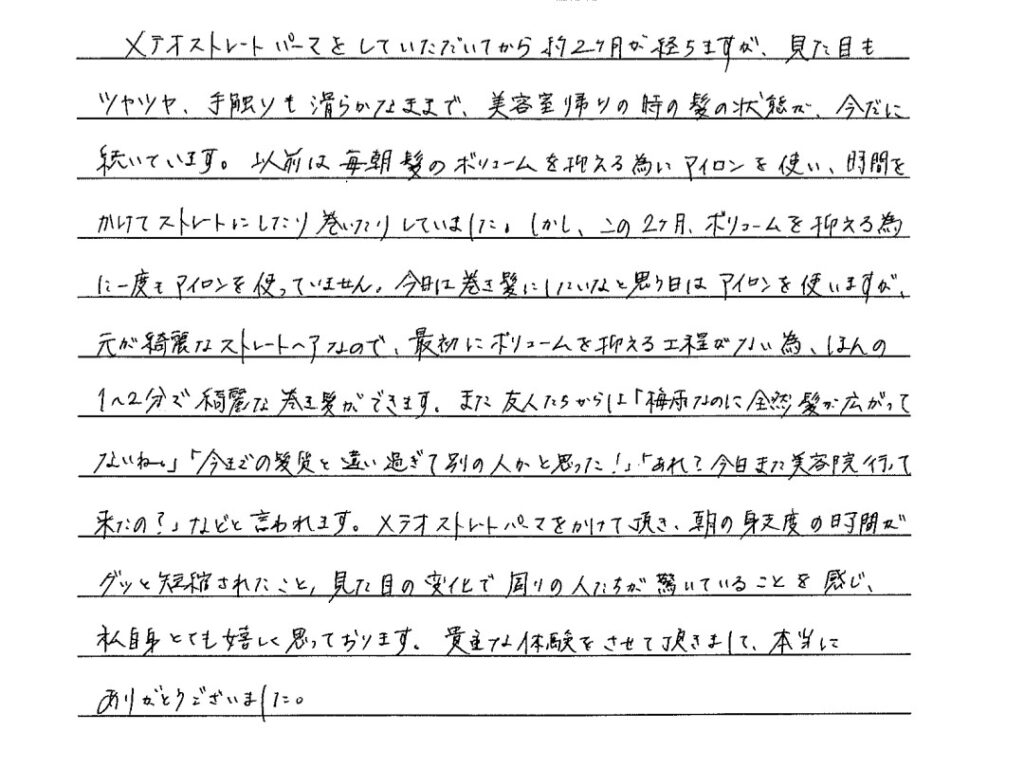 メテオストレートパーマをしていただいてから約2ヶ月が経ちますが、見た目も
ツヤツヤ、手触りも滑らかなままで、美容室帰りの時の髪の状態が、今だに
続いています。以前は毎朝髪のボリュームを抑える為にアイロンを使い、時間を
かけてストレートにしたり巻いたりしていました。しかし、この2ヶ月、ボリュームを抑える為
に一度もアイロンを使っていません。今日は巻き髪にしたいなと思う日はアイロンを使いますが、
元が綺麗なストレートヘアなので、最初にボリュームを抑える工程がない為、ほんの
1〜2分で綺麗な巻き髪ができます。また友人たちからは「梅雨なのに全然髪が広がって
ないねー。」「今までの髪質と違い過ぎて別の人かと思った!」「あれ?今日また美容院行って
来たの?」などと言われます。メテオストレートパーマをかけて頂き、朝の身支度の時間が
グッと短縮されたこと、見た目の変化で周りの人たちが驚いていることを感じ、
私自身とても嬉しく思っております。貴重な体験をさせて頂きまして、本当に
ありがとうございました。